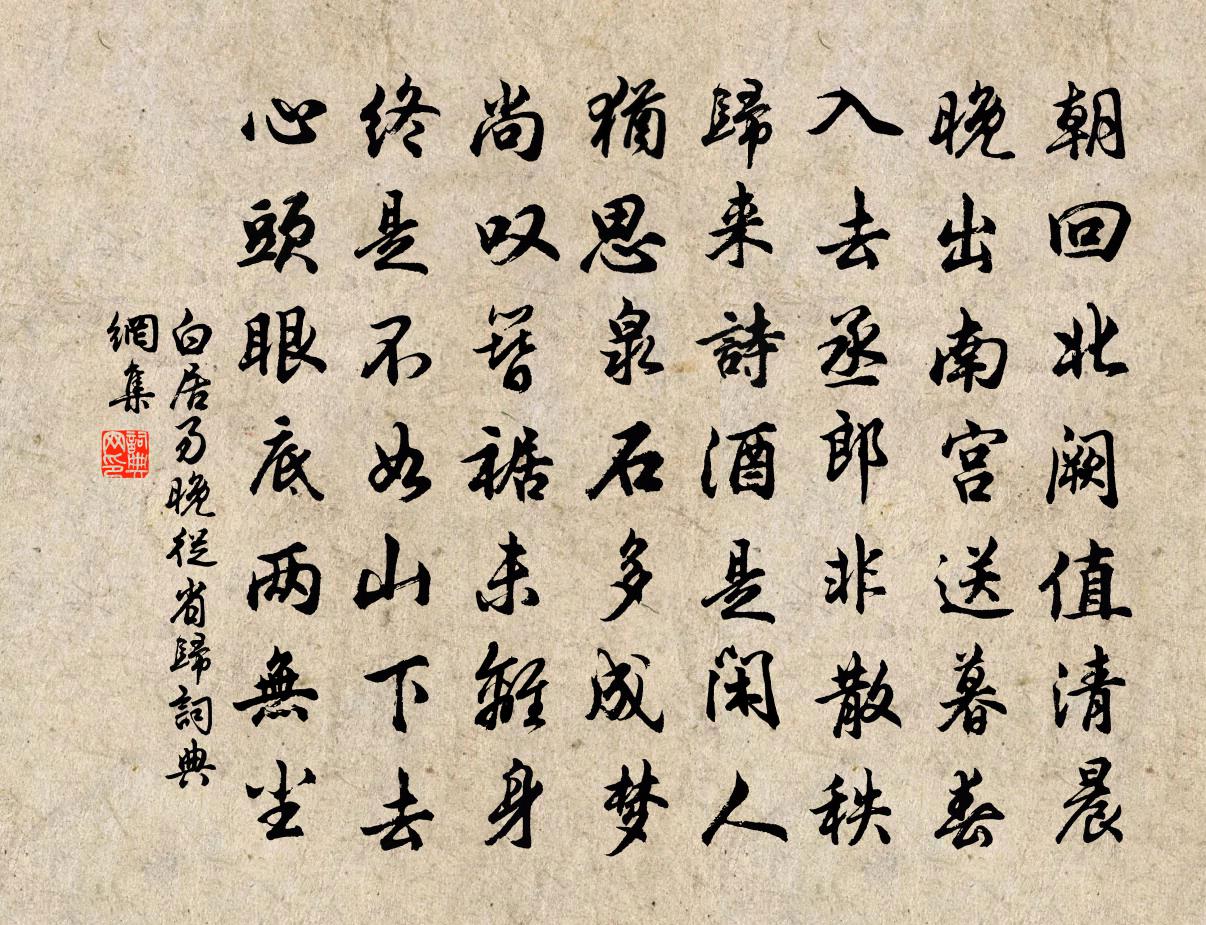 朝回北阙值清晨
晚出南宫送暮春
入去丞郎非散秩
歸来詩酒是闲人
猶思泉石多成梦
尚叹簪裾未離身
终是不如山下去
心頭眼底两無尘
白居易晚從省歸詞典
網集
詞典
网印